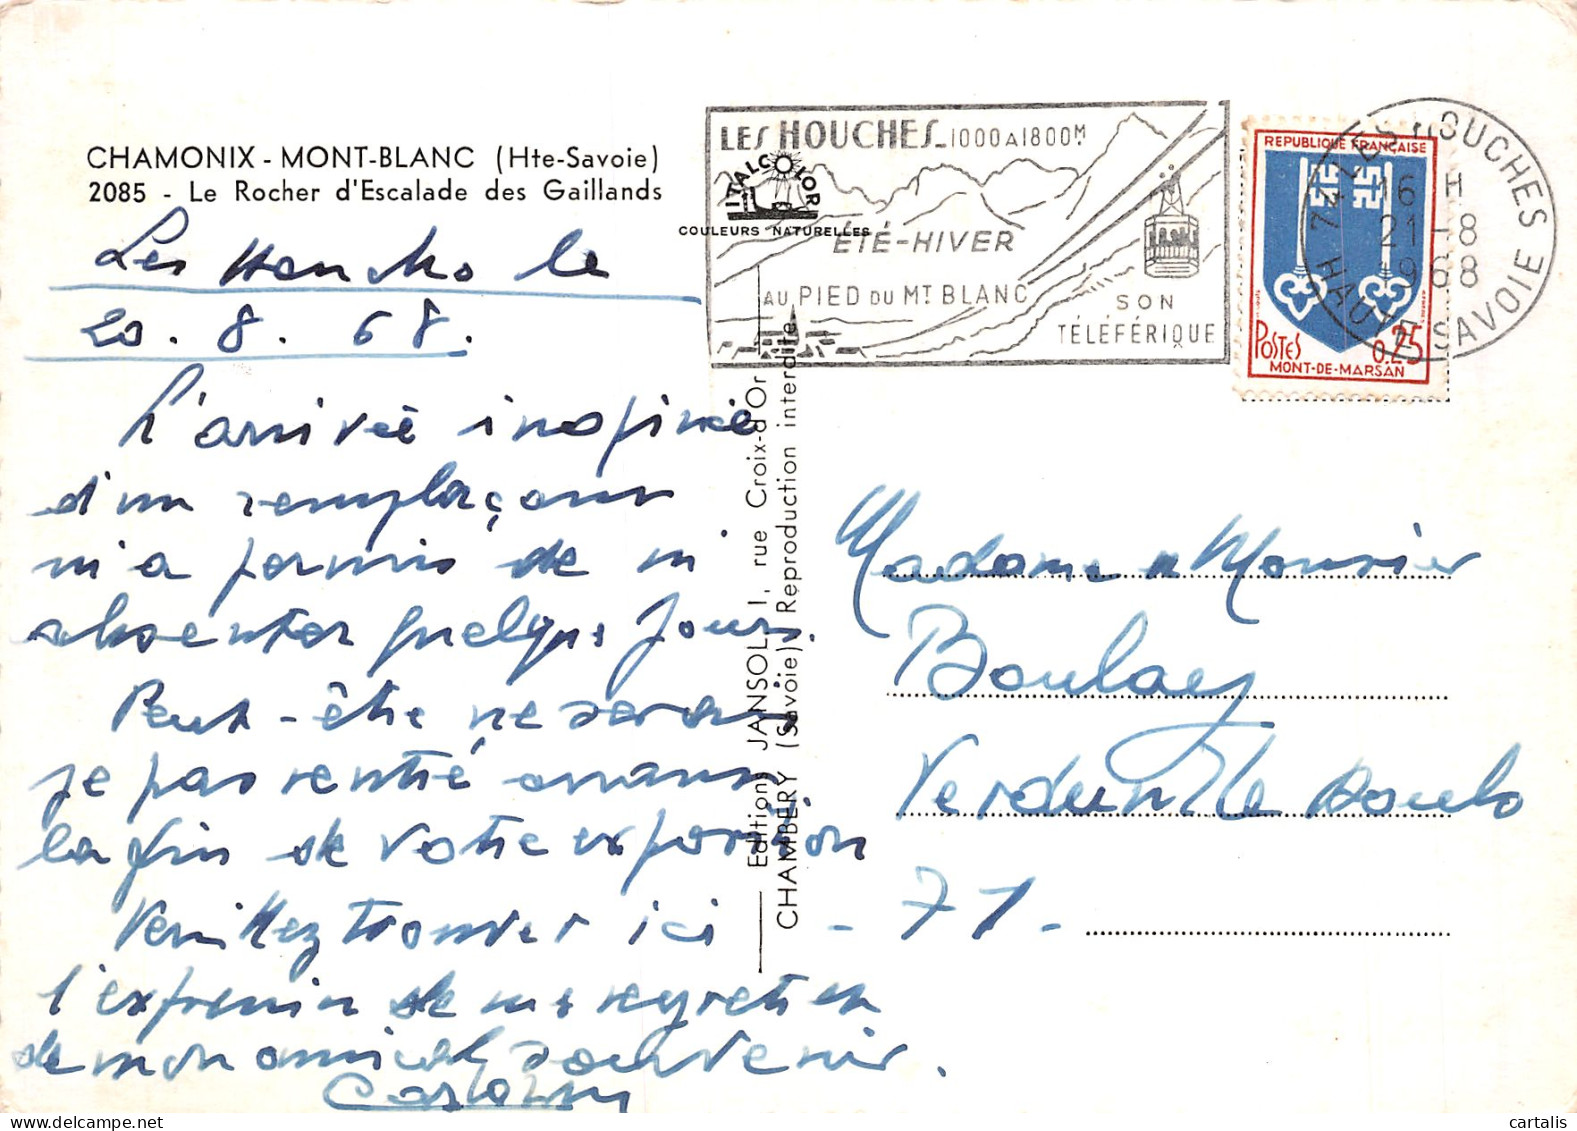 CHAMONIX - MONT-BLANC (Hte-Savoie)
2085 - Le Rocher d'Escalade des Gaillands
Les Houches le
20. 8. 68.
L'arrivée inopinée
d'un remplaçant
m'a permis de m'
absenter quelques jours.
Peut-être ne serai
je pas rentré avant
la fin de votre exposition
Veuillez trouver ici
l'expression de mes regrets et
de mon amical souvenir.
ITALCOLOR
COULEURS NATURELLES
LES HOUCHES_1000 A 1800M.
ÉTÉ-HIVER
AU PIED DU MT BLANC
SON
TÉLÉFÉRIQUE
REPUBLIQUE FRANÇAISE
POSTES
0.25
MONT-DE-MARSAN
74 LES HOUCHES
16 H
21-8
1968
HAUTE SAVOIE
Editions JANSOL, 1, rue Croix-d'Or
CHAMBERY (Savoie) Reproduction interdite
Madame et Monsieur
Boulay
Verdun s/ le Doubs
- 71 -
cartalis
www.delcampe.net